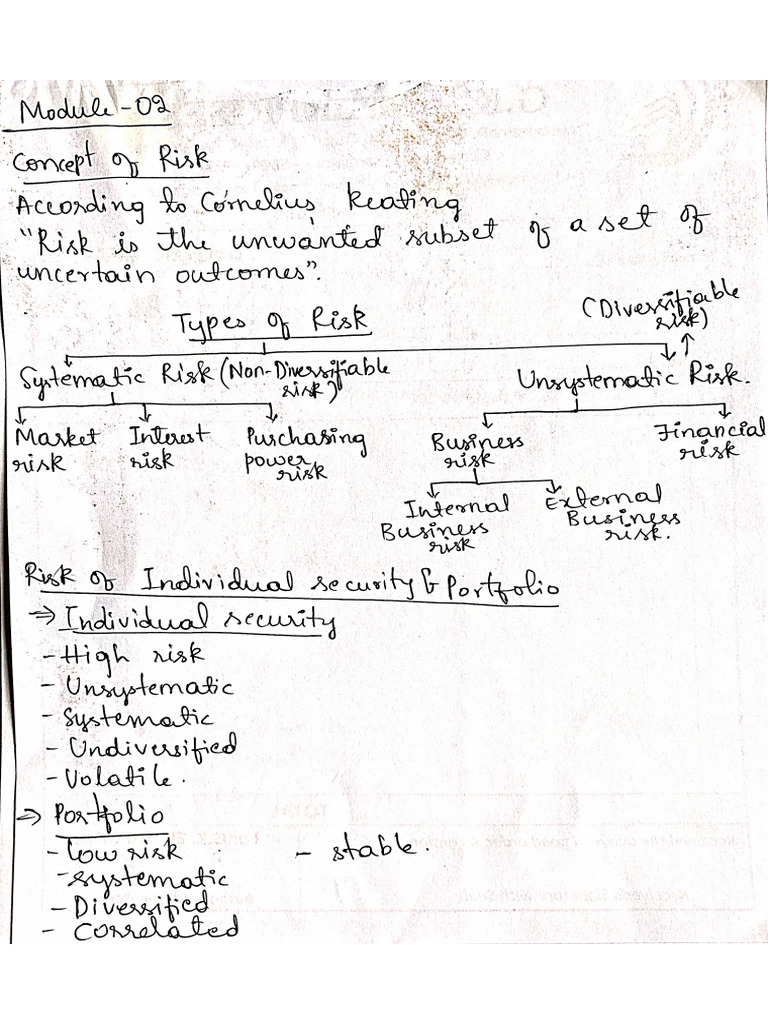 Module-02
Concept of Risk
According to Cornelius Keating
"Risk is the unwanted subset of a set of
uncertain outcomes".
Types of Risk
(Diversifiable
risk)
Systematic Risk (Non-Diversifiable
risk)
Unsystematic Risk.
Market
risk
Interest
risk
Purchasing
power
risk
Business
risk
Financial
risk
Internal
Business
risk
External
Business
risk.
Risk of Individual security & Portfolio
⇒ Individual security
- High risk
- Unsystematic
- Systematic
- Undiversified
- Volatile.
⇒ Portfolio
- low risk - stable.
- systematic
- Diversified
- Correlated